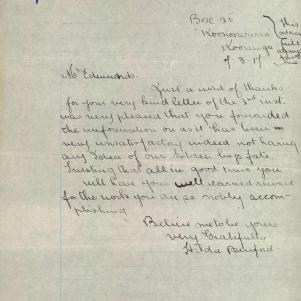 Box 26
Kooringa
7.3.17
this
full
Mr Edmunds.
Just a word of thanks
for your very kind letter of the 2nd inst.
was very pleased that you forwarded
the information on as it has been
very unsatisfactory indeed not having
any of our fate.
Trusting that all in good time you
will have your well earned reward
for the work you are so nobly accom-
plishing
Believe me to be yours
very Gratefully
Hilda